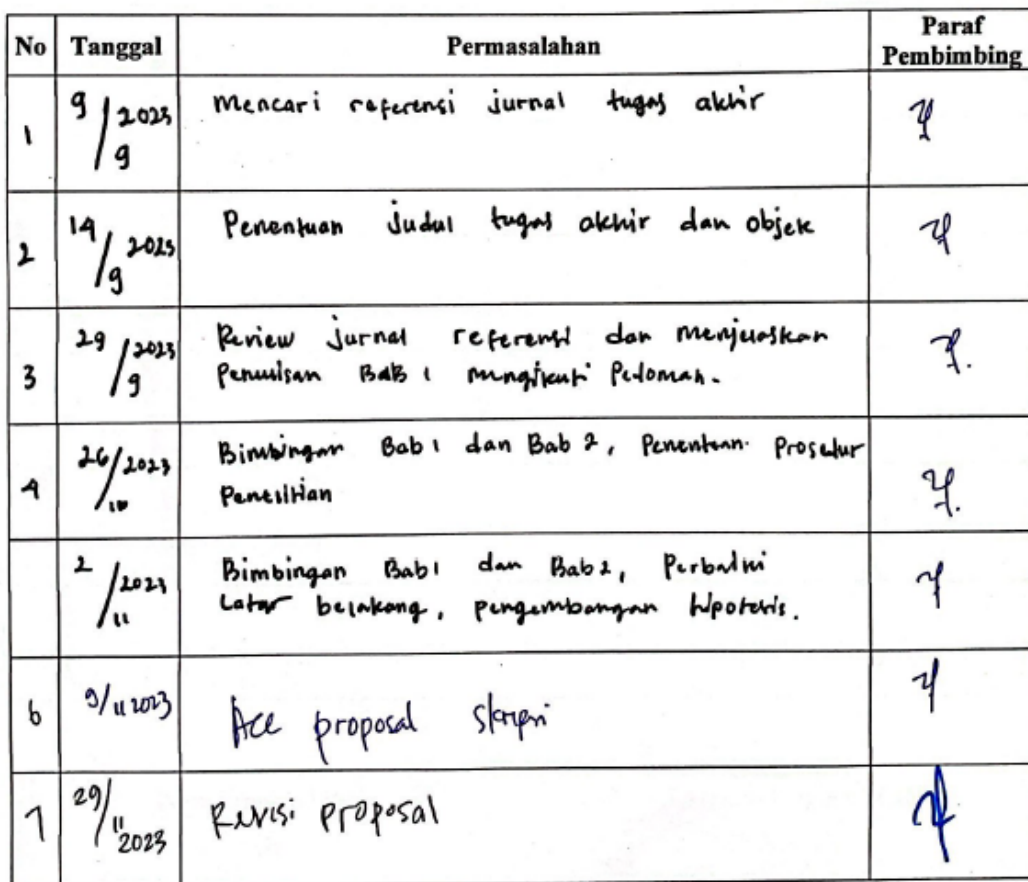 No Tanggal Permasalahan Paraf Pembimbing
1 9/9 2023 Mencari referensi jurnal tugas akhir
2 14/9 2023 Penentuan judul tugas akhir dan objek
3 29/9 2023 Review jurnal referensi dan menjelaskan
Penulisan BAB 1 mengikuti Pedoman.
4 26/10 2023 Bimbingan Bab 1 dan Bab 2, Penentuan Prosedur
Penelitian
2/11 2023 Bimbingan Bab 1 dan Bab 2, Perbaiki
Latar belakang, pengembangan hipotesis.
6 9/11 2023 Acc proposal skripsi
7 29/11 2023 Revisi proposal